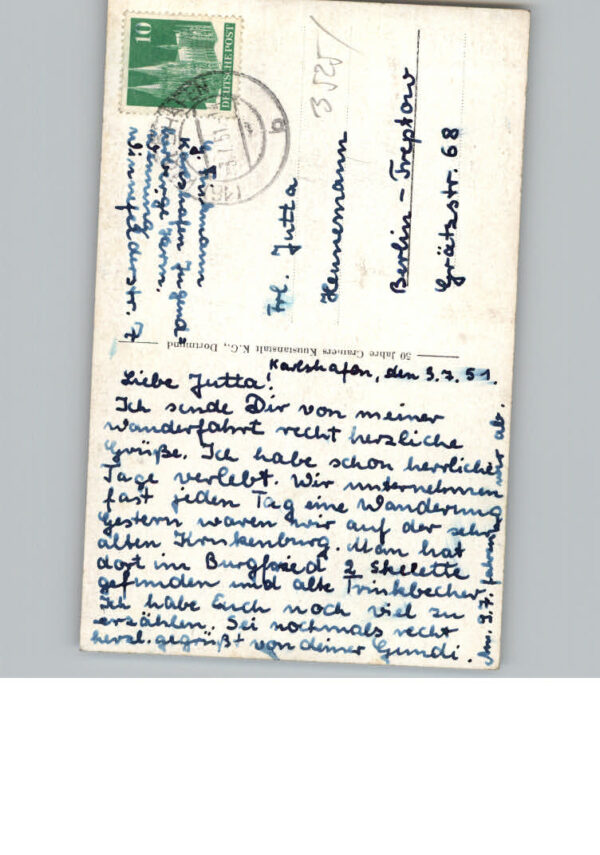 10
DEUTSCHE POST
3525/
Frl. Jutta
Hennemann
Berlin-Treptow
Grätzstr. 68
Karlshafen Jugend=
herberge
50 Jahre Cramers Kunstanstalt K.G., Dortmund
Karlshafen, den 3.7.51.
Liebe Jutta!
Ich sende Dir von meiner
Wanderfahrt recht herzliche
Grüße. Ich habe schon herrliche
Tage verlebt. Wir unternehmen
fast jeden Tag eine Wanderung
Gestern waren wir auf der sehr
alten Krukenburg. Man hat
dort im Burgfried 2 Skelette
gefunden und alte Trinkbecher
Ich habe Euch noch viel zu
erzählen. Sei nochmals recht
herzl. gegrüßt von deiner Gundi.
Am 9.7. fahren wir ab.